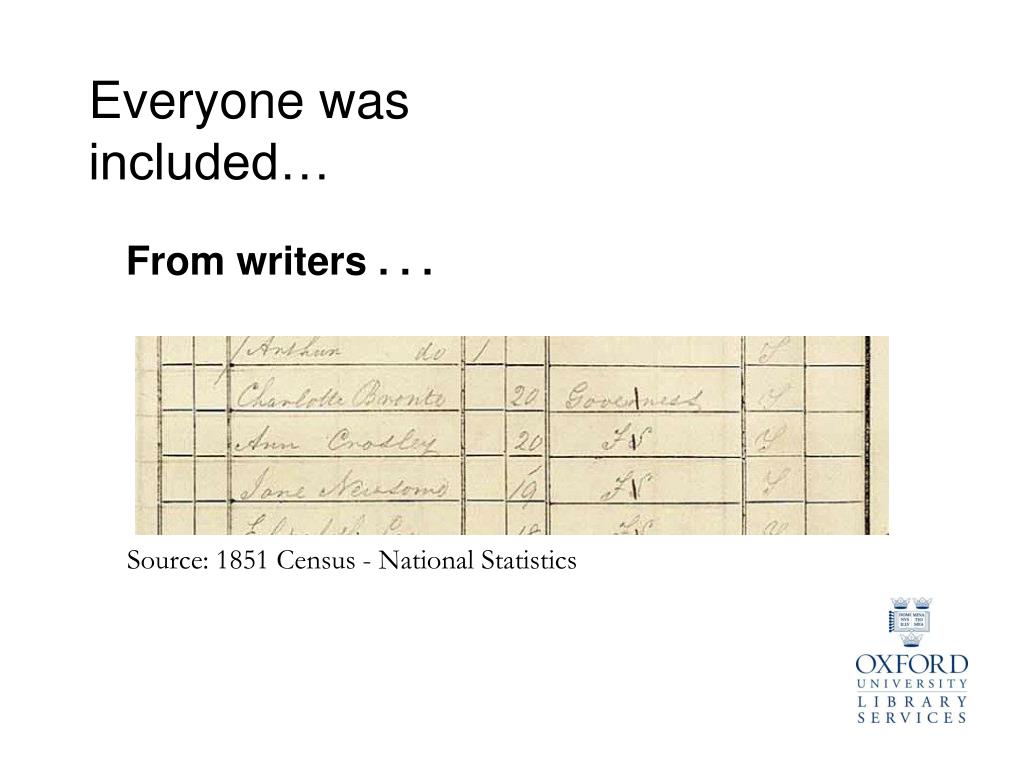 Everyone was
included…
From writers . . .
Arthur do 1 S
Charlotte Bronte 20 Governess S
Ann Crosley 20 FS S
Jane Newsome 19 FS S
18 FS
Source: 1851 Census - National Statistics
DOMI MINA
NVS TIO
ILLV MEA
OXFORD
UNIVERSITY
LIBRARY
SERVICES